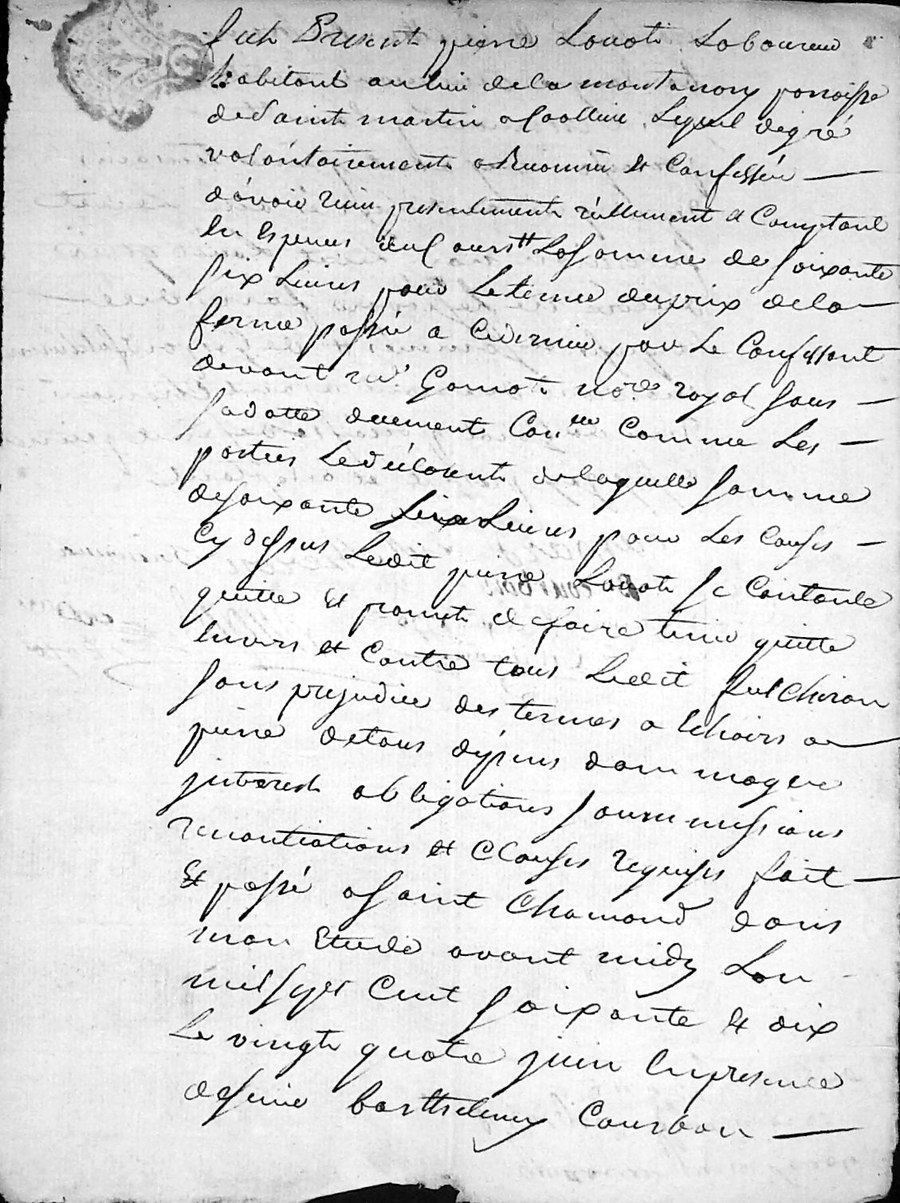 fut Present pierre Louat Laboureur
habitant au lieu de la montanory parroisse
de Saint martin a Coallieu Lequel de gré
volontairement a Reconnu et Confessée —
d'avoir reçu presentement réellement et Comptant
en Especes ayant cours La somme de soixante
six Livres pour Le terme du prix de la —
ferme passé a ce dernier par Le Confessant
devant me Gamot nore royal sous —
sa datte duement Conllée Comme Les —
parties Le déclarent de laquelle somme
de soixante six Livres pour Les Causes —
Cy dessus Ledit pierre Louat se Contante
quitte et promet de faire tenir quitte
Envers et Contre tous Ledit fulchiron
sans prejudice des termes a Echoirs a —
peine de tous dépens dommages
interests obligations soummissions
renontiations et Clauses requises fait —
Et passé a Saint Chamond dans
mon Etude avant midy Lan
mil sept Cent soixante et dix
Le vingt quatre juin En presence
de sieur barthelemy Courbon —